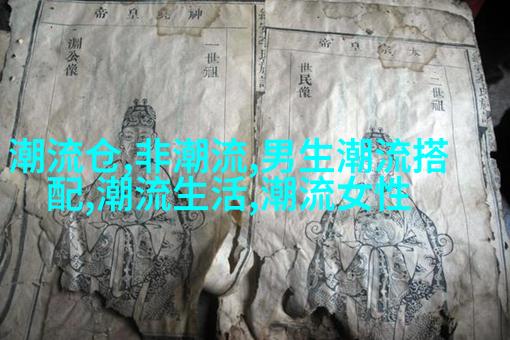 神堯皇帝
一世祖
淵公像
太宗皇帝
二世祖
世民像
潮流仓,非潮流,男生潮流搭
配,潮流生活,潮流女性